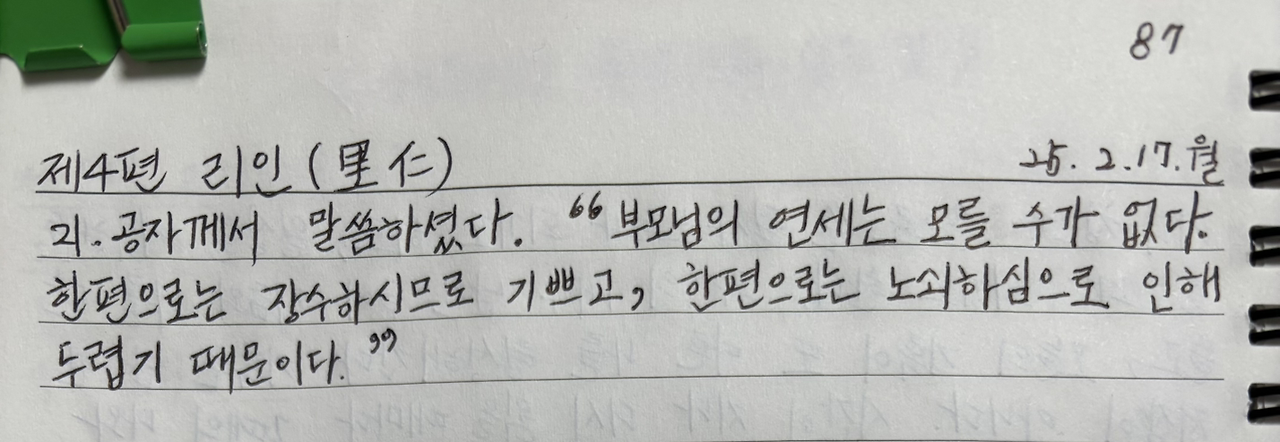 87
제4편 리인(里仁) 25. 2. 17. 월
21. 공자께서 말씀하셨다. “부모님의 연세는 모를 수가 없다.
한편으로는 장수하시므로 기쁘고, 한편으로는 노쇠하심으로 인해
두렵기 때문이다.”